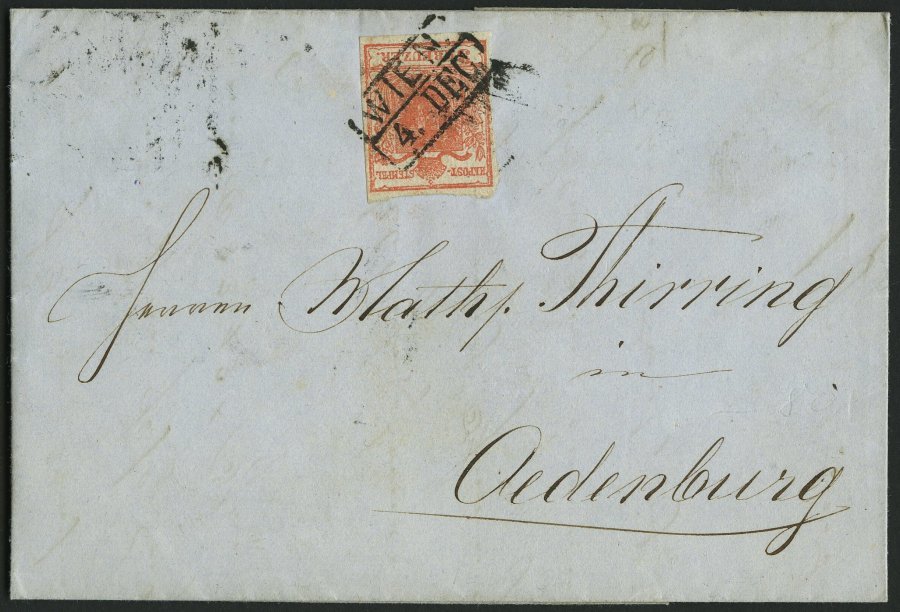 WIEN
4. DEC.
KREUZER.
KKPOST-STEMPEL
Herren Maths. Thirring
in
Oedenburg